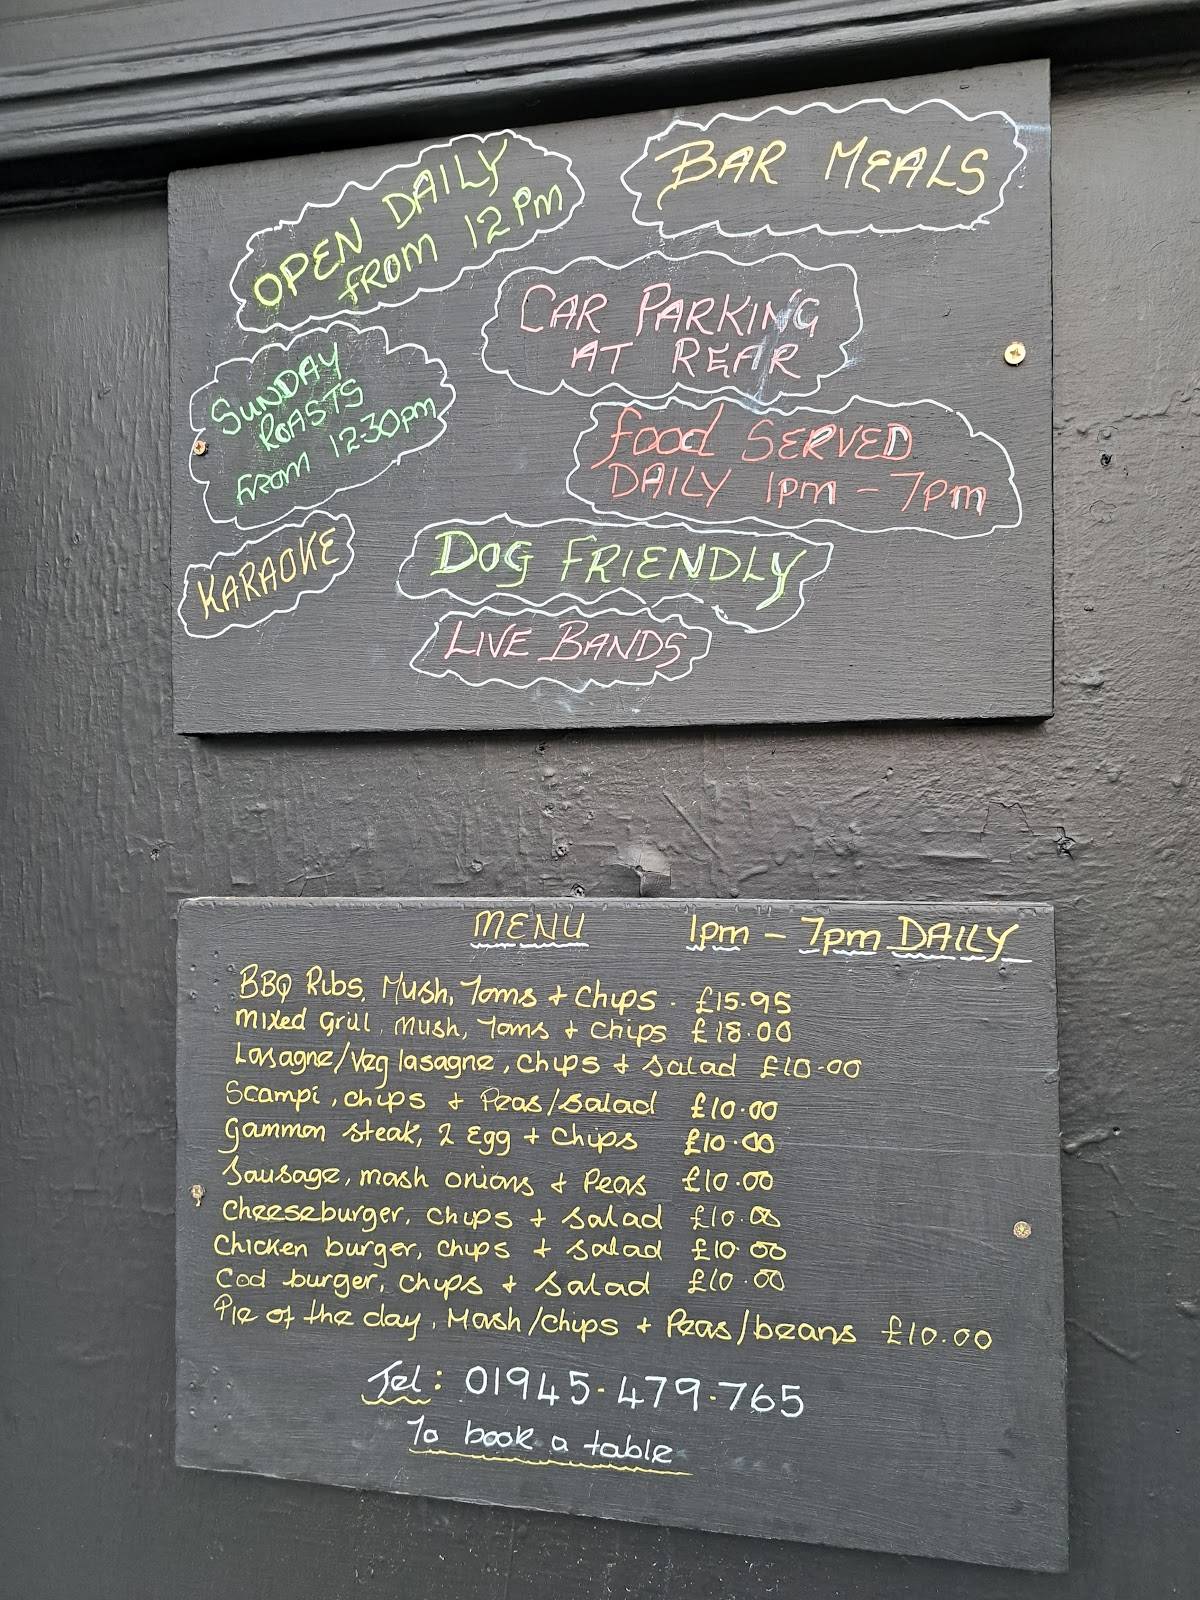 OPEN DAILY
FROM 12pm
BAR MEALS
CAR PARKING
AT REAR
SUNDAY
ROASTS
FROM 12.30pm
food SERVED
DAILY 1pm - 7pm
KARAOKE
DOG FRIENDLY
LIVE BANDS
MENU 1pm - 7pm DAILY
BBQ Ribs, Mush, Toms + Chips. £15.95
Mixed Grill, Mush, Toms + chips £18.00
Lasagne/Veg lasagne, chips + salad £10.00
Scampi, chips + Peas/Salad £10.00
Gammon steak, 2 Egg + Chips £10.00
Sausage, mash onions + Peas £10.00
Cheeseburger, chips + salad £10.00
Chicken burger, chips + salad £10.00
Cod burger, chips + salad £10.00
Pie of the day, Mash/chips + Peas/beans £10.00
Tel: 01945-479-765
To book a table